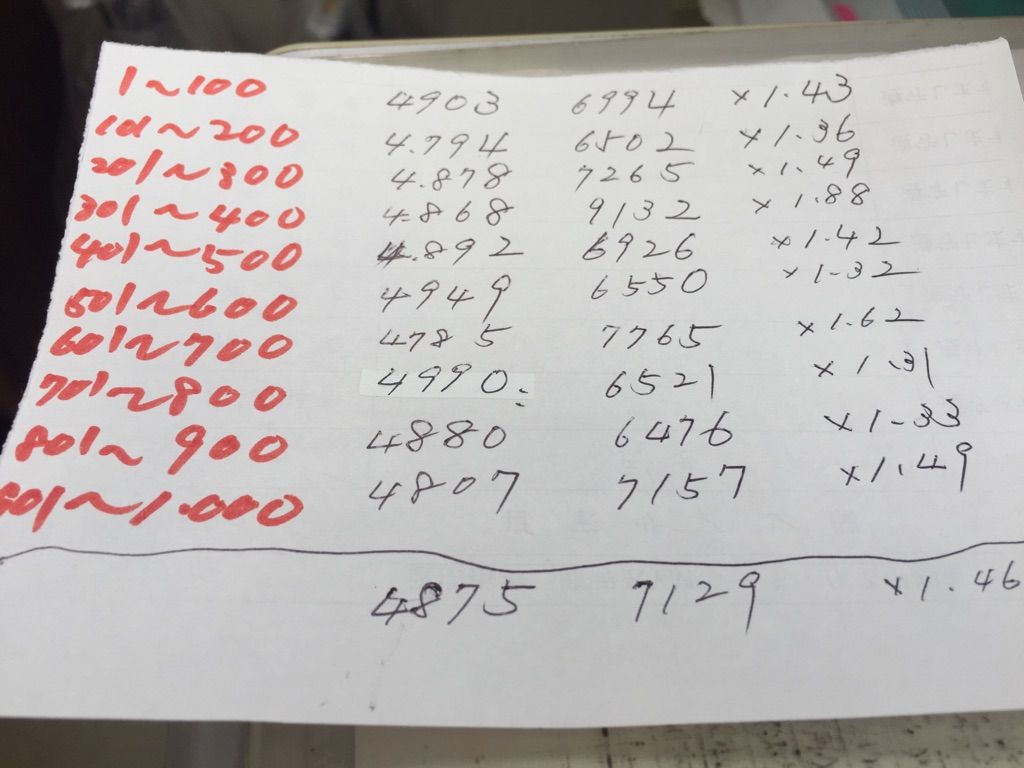 1~100 4903 6994 ×1.43
101~200 4.794 6502 ×1.36
201~300 4.878 7265 ×1.49
301~400 4.868 9132 ×1.88
401~500 4.892 6926 ×1.42
501~600 4949 6550 ×1.32
601~700 4785 7765 ×1.62
701~800 4990 6521 ×1.31
801~900 4880 6476 ×1.33
901~1.000 4807 7157 ×1.49
4875 7129 ×1.46